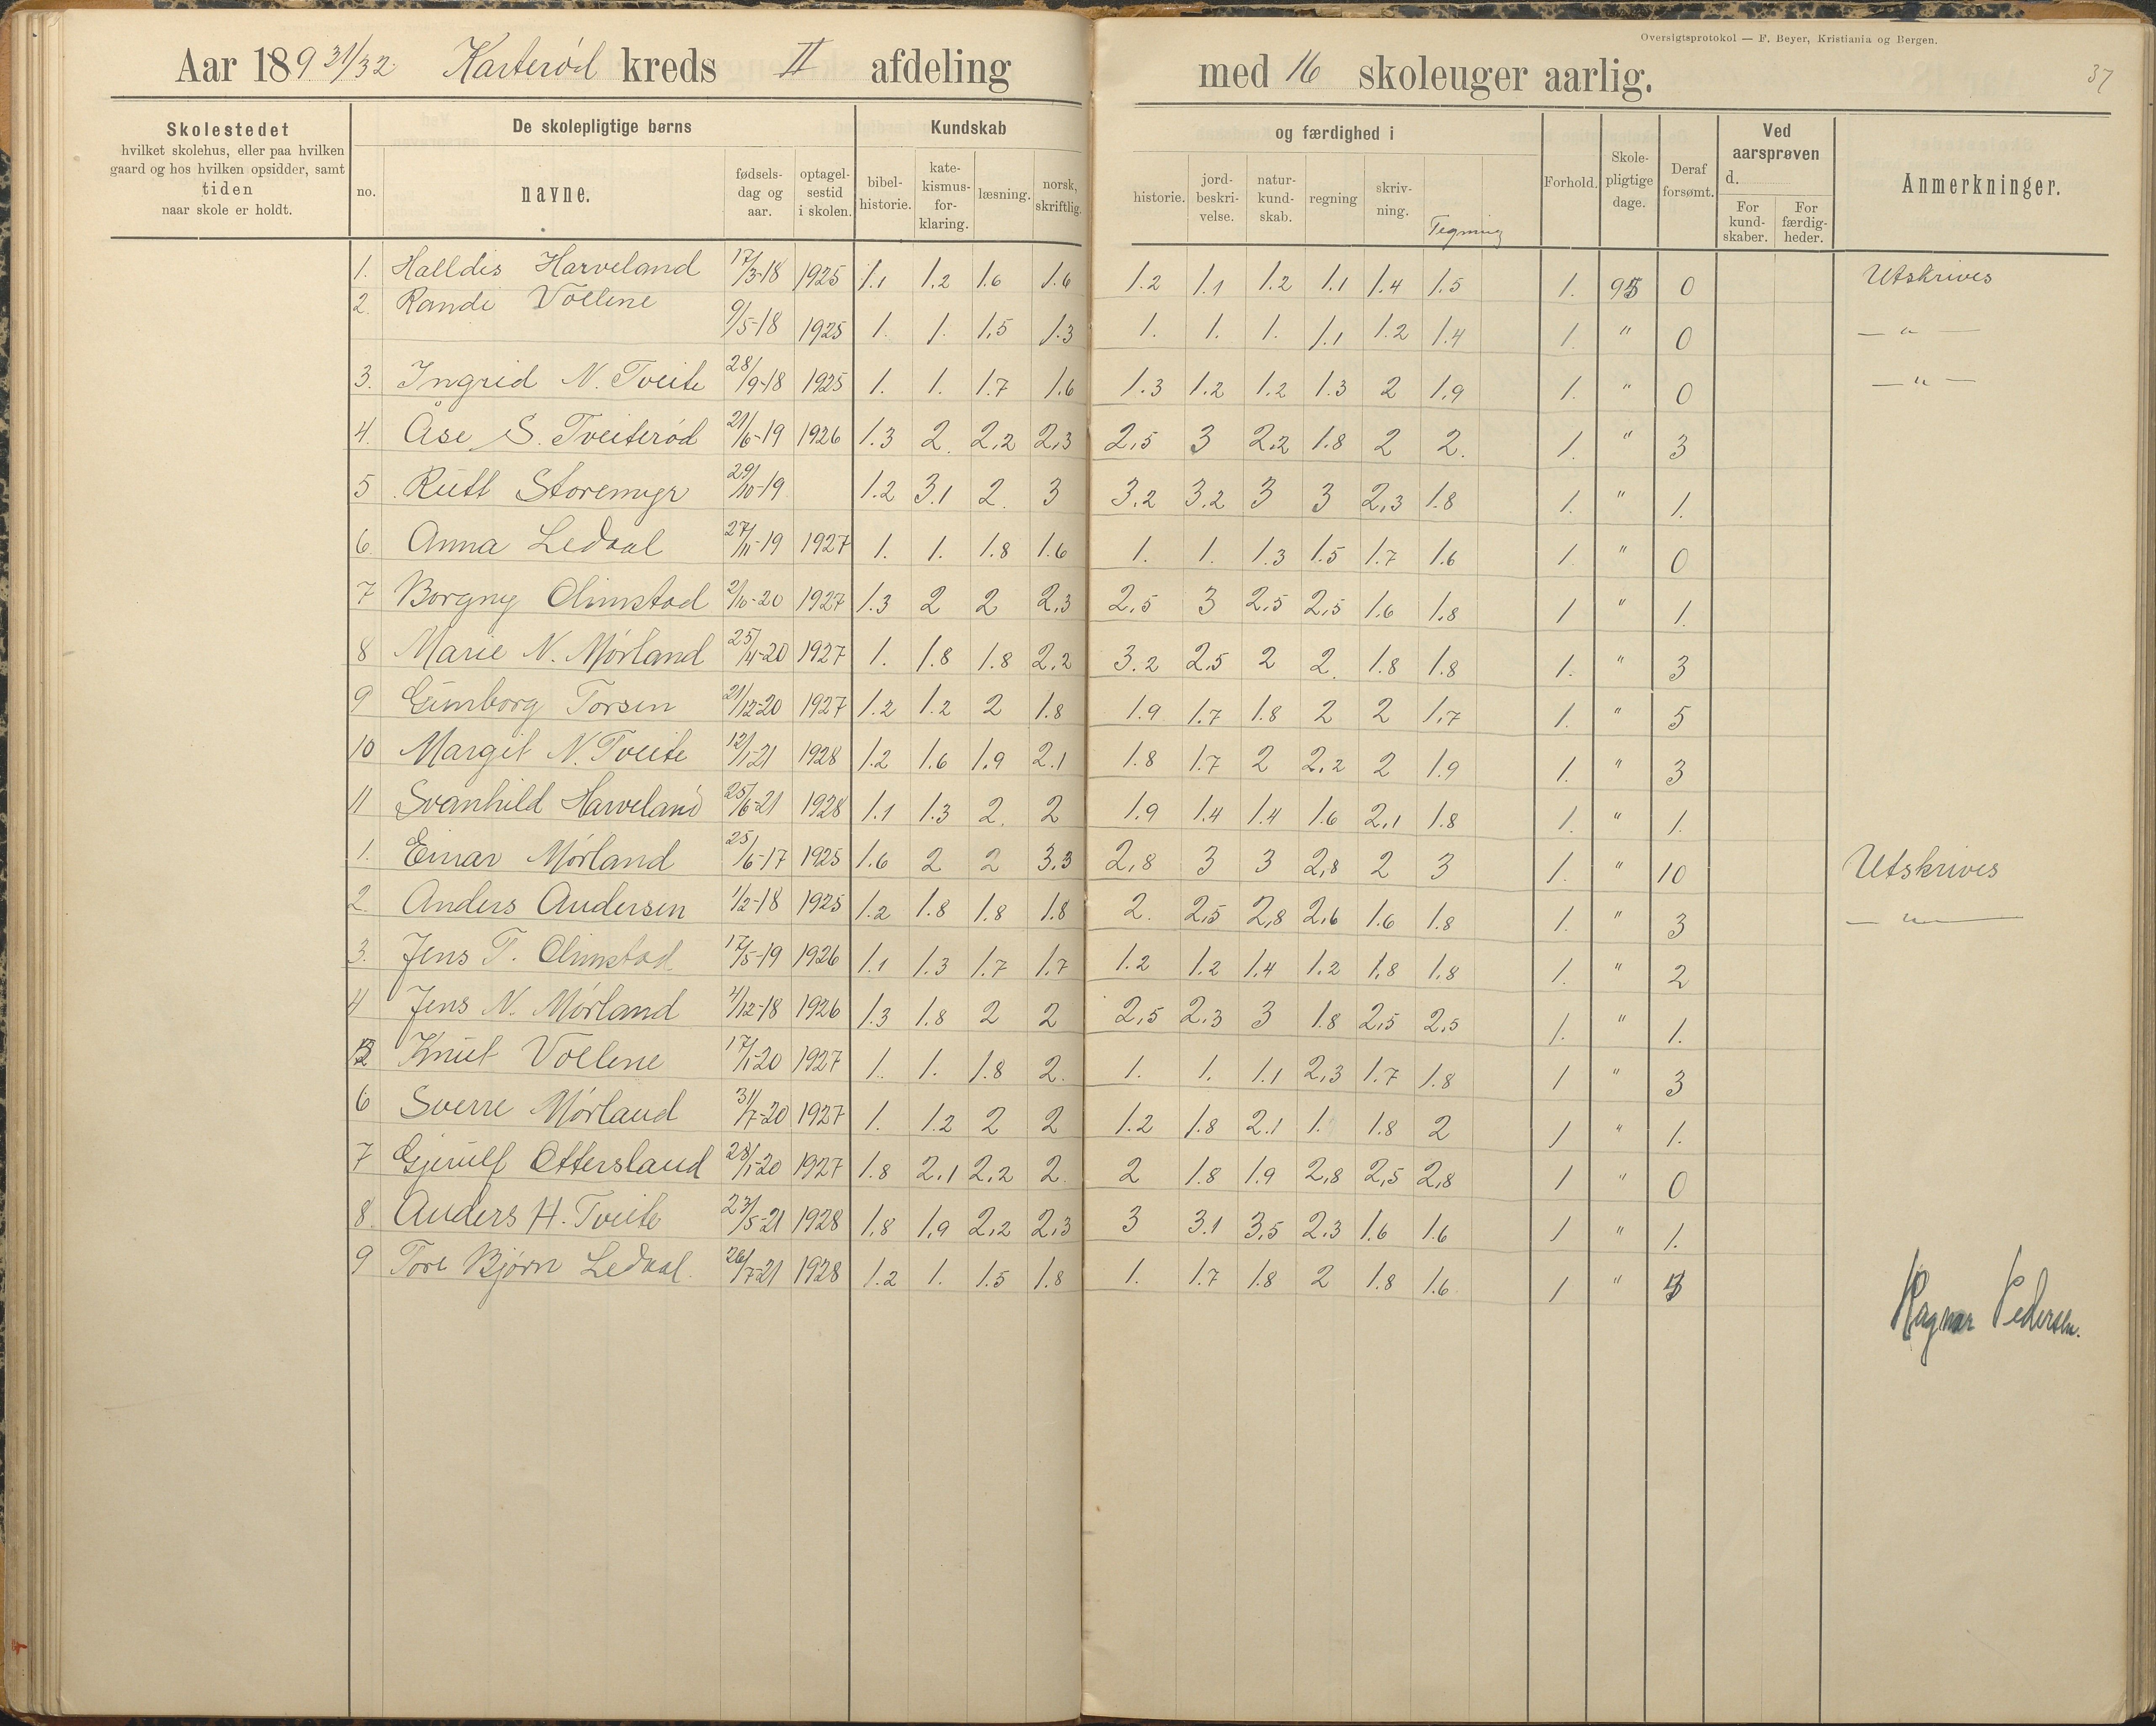 Oversigtsprotokol — F. Beyer, Kristiania og Bergen.
37
Aar 189 31/32. Karterød kreds II afdeling med 16 skoleuger aarlig.
Skolestedet hvilket skolehus, eller paa hvilken gaard og hos hvilken opsidder, samt tiden naar skole er holdt.
De skolepligtige børns
no. navne. fødselsdag og aar. optagelsestid i skolen.
Kundskab og færdighed i
bibelhistorie. katekismusforklaring. læsning. norsk, skriftlig. historie. jordbeskrivelse. naturkundskab. regning skrivning. Tegning
Forhold. Skolepligtige dage. Deraf forsømt.
Ved aarsprøven d. For kundskaber. For færdigheder.
Anmerkninger.
1. Halldis Harveland 17/3-18 1925 1.1 1.2 1.6 1.6 1.2 1.1 1.2 1.1 1.4 1.5 1. 95 0 Utskrives
2. Randi Vollene 9/5-18 1925 1. 1. 1,5 1.3 1. 1. 1. 1.1 1.2 1.4 1. " 0 — " —
3. Ingrid N. Tveite 28/9-18 1925 1. 1. 1.7 1.6 1.3 1.2 1.2 1.3 2 1.9 1. " 0 — " —
4. Åse S. Tveiterød 21/6-19 1926 1.3 2. 2.2 2,3 2,5 3 2.2 1.8 2 2. 1. " 3
5 Ruth Storemyr 29/10-19 1.2 3.1 2. 3 3.2 3.2 3 3 2,3 1.8 1. " 1.
6. Anna Ledaal 27/11-19 1927 1. 1. 1.8 1.6 1. 1. 1.3 1.5 1.7 1.6 1. " 0
7 Borgny Olimstad 2/10-20 1927 1.3 2 2 2,3 2,5 3 2,5 2,5 1.6 1.8 1 " 1.
8 Marie N. Mørland 25/4-20 1927 1. 1.8 1.8 2.2 3.2 2.5 2 2. 1.8 1.8 1. " 3
9 Gunborg Torsen 21/12-20 1927 1.2 1.2 2 1.8 1.9 1.7 1.8 2 2 1.7 1. " 5
10 Margit N. Tveite 12/1-21 1928 1.2 1.6 1.9 2.1 1.8 1.7 2 2.2 2 1.9 1. " 3
11 Svanhild Harveland 25/6-21 1928 1.1 1.3 2. 2 1.9 1.4 1.4 1.6 2.1 1.8 1. " 1.
1. Einar Mørland 25/6-17 1925 1.6 2 2 3.3 2,8 3 3 2,8 2 3 1. " 10 Utskrives
2. Anders Andersen 1/2-18 1925 1.2 1.8 1.8 1.8 2. 2,5 2,8 2,6 1.6 1.8 1. " 3 — " —
3. Jens T. Olimstad 17/5-19 1926 1.1 1.3 1.7 1.7 1.2 1.2 1.4 1.2 1.8 1.8 1. " 2
4 Jens N. Mørland 4/12-18 1926 1.3 1.8 2 2 2,5 2.3 3 1.8 2,5 2,5 1. " 1.
Knut Vollene 17/1-20 1927 1. 1. 1.8 2. 1. 1. 1.1 2,3 1.7 1.8 1 " 3
6 Sverre Mørland 31/7-20 1927 1. 1.2 2 2 1.2 1.8 2.1 1. 1.8 2 1 " 1.
7 Gjerulf Ottersland 28/1-20 1927 1.8 2.1 2.2 2. 2 1.8 1.9 2,8 2,5 2,8 1 " 0
8. Anders H. Tveite 23/5-21 1928 1,8 1,9 2,2 2,3 3 3.1 3,5 2.3 1.6 1.6 1 " 1.
9 Tore Bjørn Ledaal. 26/7-21 1928 1.2 1. 1.5 1.8 1. 1.7 1.8 2 1.8 1.6. 1 "
Ragnar Pedersen.